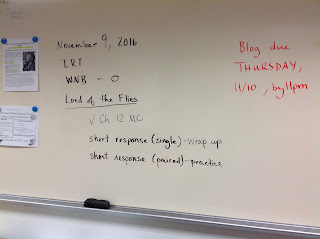 November 9, 2016
IRT
WNB - O
Lord of the Flies
√ Ch. 12 MC
short response (single) - wrap up
short response (paired) - practice
Blog due
THURSDAY,
11/10, by 11pm